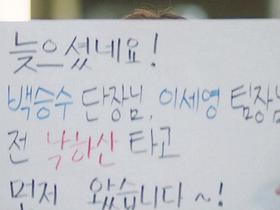 늦으셨네요!
백승수 단장님, 이세영 팀장님
전 낙하산 타고
먼저 왔습니다~!